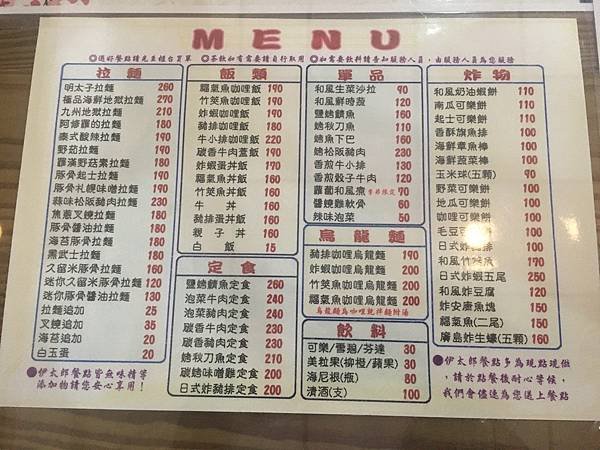 MENU
●選好餐點請先至櫃台買單 ●茶飲如有需要請自行取用 ●如需要飲料請告知服務人員，由服務人員為您服務
拉麵
明太子拉麵 260
極品海鮮地獄拉麵 270
九州地獄拉麵 210
阿修羅的拉麵 180
泰式酸辣拉麵 190
野菇拉麵 190
羅漢野菇素拉麵 180
豚骨起士拉麵 190
豚骨札幌味噌拉麵 190
蒜味松阪豬肉拉麵 230
焦蔥叉燒拉麵 180
豚骨醬油拉麵 180
海苔豚骨拉麵 180
黑武士拉麵 190
久留米豚骨拉麵 160
迷你久留米豚骨拉麵 120
迷你豚骨醬油拉麵 130
拉麵追加 25
叉燒追加 35
海苔追加 20
白玉蛋 20
●伊太郎餐點皆無味精等
添加物請您安心享用！
飯類
福氣魚咖哩飯 190
竹筴魚咖哩飯 190
炸蝦咖哩飯 190
豬排咖哩飯 190
牛小排咖哩飯 220
碳香牛肉蓋飯 190
炸蝦蛋丼飯 170
福氣魚丼飯 160
竹筴魚丼飯 160
牛丼 160
豬排蛋丼飯 160
親子丼 160
白飯 15
定食
鹽鯖魚定食 260
泡菜牛肉定食 240
泡菜豬肉定食 240
碳香牛肉定食 240
碳香豬肉定食 230
烤秋刀魚定食 210
碳烤味噌雞定食 240
日式炸豬排定食 240
單品
和風生菜沙拉 90
和風鮮時蔬 120
鹽烤鯖魚 160
烤秋刀魚 110
烤魚下巴 160
烤松阪豬肉 230
香煎牛小排 130
香煎骰子牛肉 120
蘿蔔和風煮 季節限定 70
醬燒雞軟骨 60
辣味泡菜 50
烏龍麵
豬排咖哩烏龍麵 190
炸蝦咖哩烏龍麵 200
竹筴魚咖哩烏龍麵 200
福氣魚咖哩烏龍麵 200
烏龍麵為咖哩乾拌麵附湯
飲料
可樂/雪碧/芬達 30
美粒果(柳橙/蘋果) 30
海尼根(瓶) 80
清酒(支) 100
炸物
和風奶油蝦餅 110
南瓜可樂餅 110
起士可樂餅 110
香酥旗魚排 100
海鮮章魚棒 100
海鮮蔬菜棒 100
玉米球(五顆) 90
野菜可樂餅 100
地瓜可樂餅 100
咖哩可樂餅 100
毛豆可樂餅 100
日式炸豬排 100
和風竹筴魚 190
日式炸蝦五尾 250
和風炸豆腐 120
炸安康魚塊 150
福氣魚(二尾) 150
廣島炸生蠔(五顆) 160
●伊太郎餐點多為現點現做，
請於點餐後耐心等候，
我們會儘速為您送上餐點